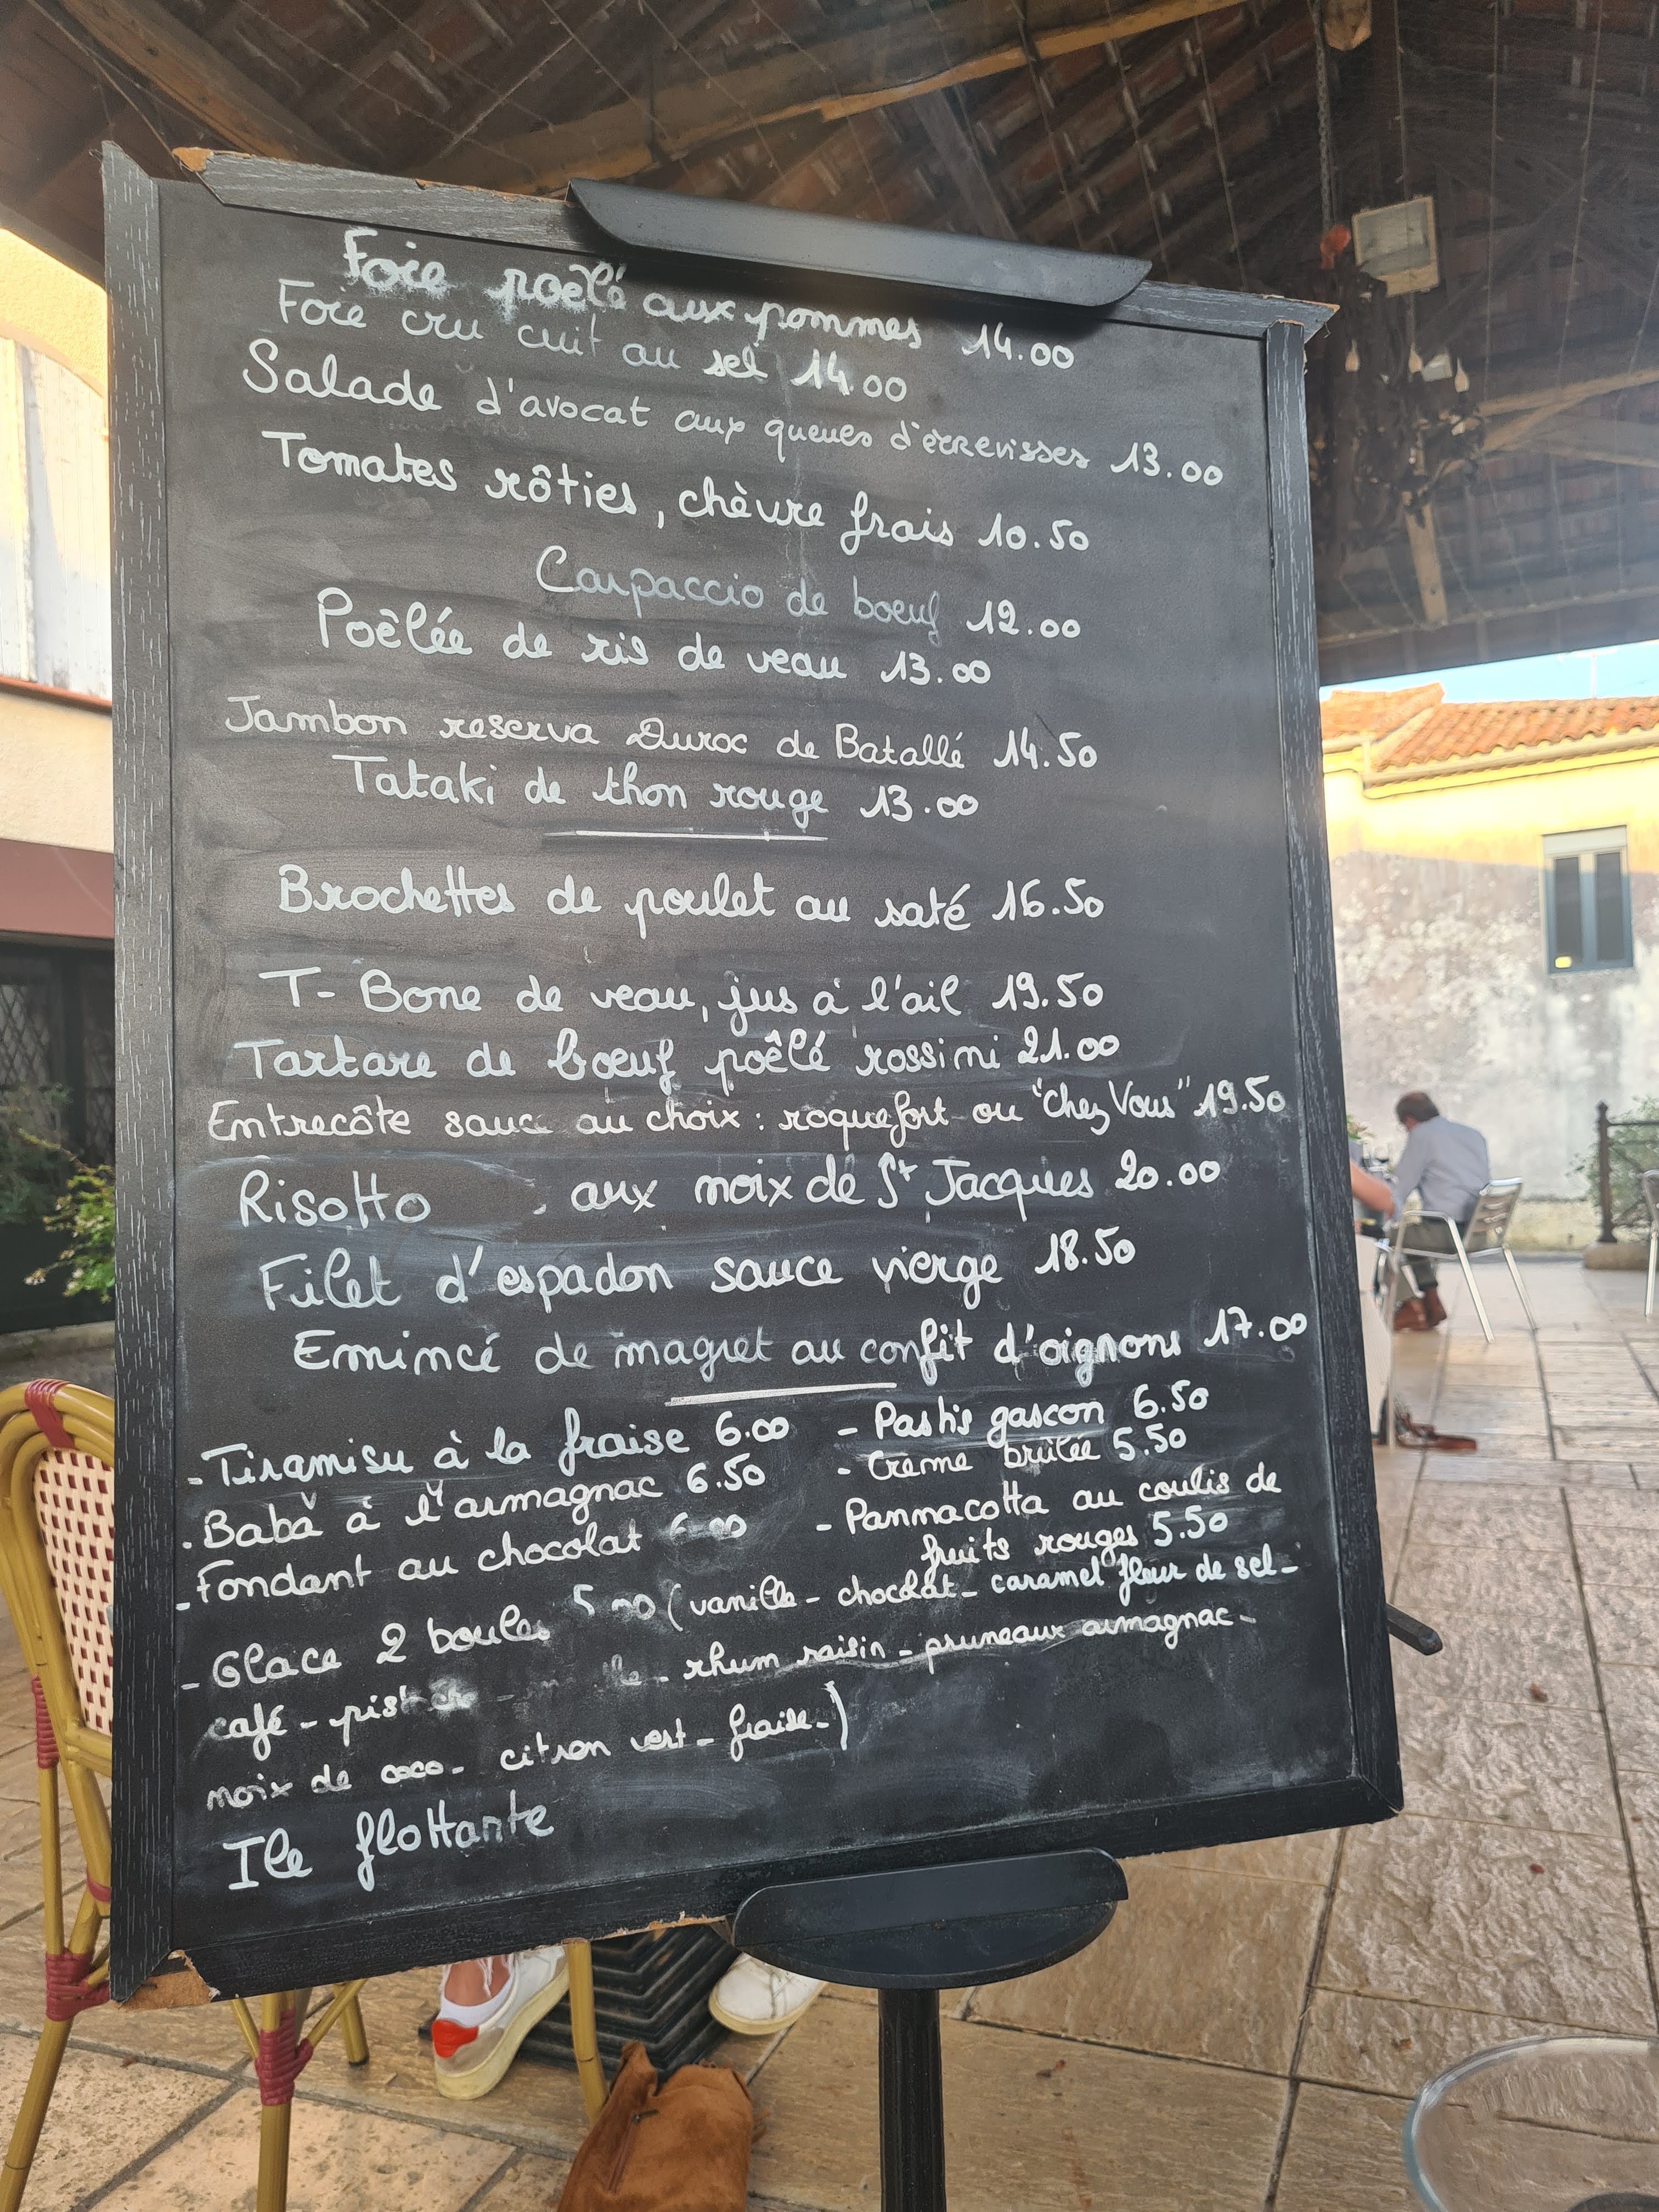 Foie poêlé aux pommes 14.00
Foie cru cuit au sel 14.00
Salade d'avocat aux queues d'écrevisses 13.00
Tomates rôties, chèvre frais 10.50
Carpaccio de boeuf 12.00
Poêlée de ris de veau 13.00
Jambon reserva Duroc de Batallé 14.50
Tataki de thon rouge 13.00
Brochettes de poulet au saté 16.50
T-Bone de veau, jus à l'ail 19.50
Tartare de boeuf poêlé rossini 21.00
Entrecôte sauce au choix : roquefort ou "Chez Vous" 19.50
Risotto aux noix de St Jacques 20.00
Filet d'espadon sauce vierge 18.50
Emincé de magret au confit d'oignons 17.00
- Tiramisu à la fraise 6.00
- Baba à l'armagnac 6.50
- Fondant au chocolat 6.00
- Pastis gascon 6.50
- Crème brûlée 5.50
- Pannacotta au coulis de
fruits rouges 5.50
- Glace 2 boules (vanille - chocolat - caramel fleur de sel -
café - - rhum raisin - pruneaux armagnac -
noix de coco - citron vert - fraise -)
Ile flottante